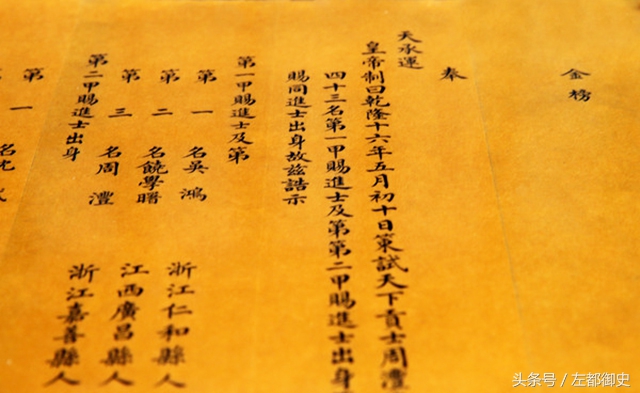 金榜
奉
天承運
皇帝制曰乾隆十六年五月初十日策試天下貢士周澧
四十三名第一甲賜進士及第第二甲賜進士出身
賜同進士出身故兹誥示
第一甲賜進士及第
第一名吳鴻 浙江仁和縣人
第二名饒學曙 江西廣昌縣人
第三名周澧 浙江嘉善縣人
第二甲賜進士出身
第一名
头条号 / 左都御史